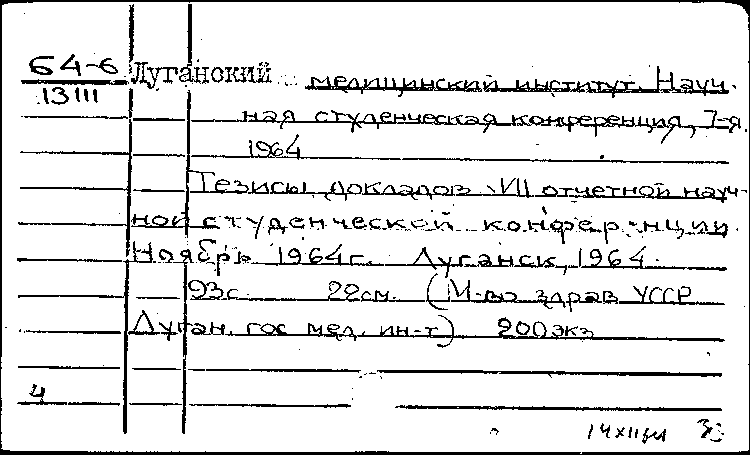 64-6 Луганский медицинский институт. Науч-
13111
ная студенческая конференция, 7-я.
1964
Тезисы докладов VII отчетной науч-
ной студенческой конференции.
Ноябрь 1964г. Луганск, 1964.
93с. 22см. (М-во здрав УССР
Луган. гос мед. ин-т) 200экз
4